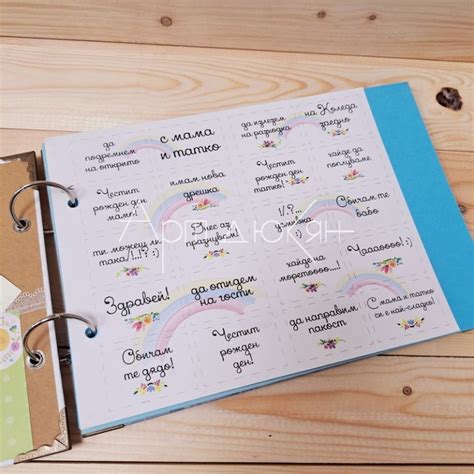 да
подремнем
на открито
с мама
и татко
да излезем
на разходка
на Коледа
заедно
Честит
рожден ден
мамо!
имам нова
дрешка
Честит
рожден ден
татко!
хайде да
поплуваме
ти можеш ли
така/!..! :)
Днес аз
празнувам!
усмивка
Обичам те
бабо
Здравей!
да отидем
на гости
хайде на
моретоооо...!
Чааааооо! :)
Обичам
те дядо!
Честит
рожден
ден!
да направим
пакост
С мама и татко
си е най-сладко!